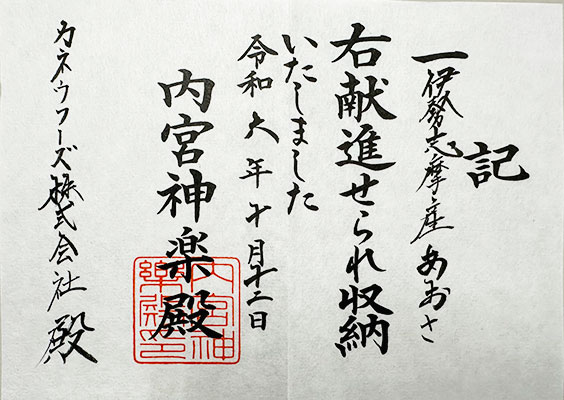 記
一伊勢志摩産あおさ
右献進せられ収納
いたしました
令和六年十月十二日
内宮神楽殿
内宮神楽殿印
カネウフーズ株式会社 殿